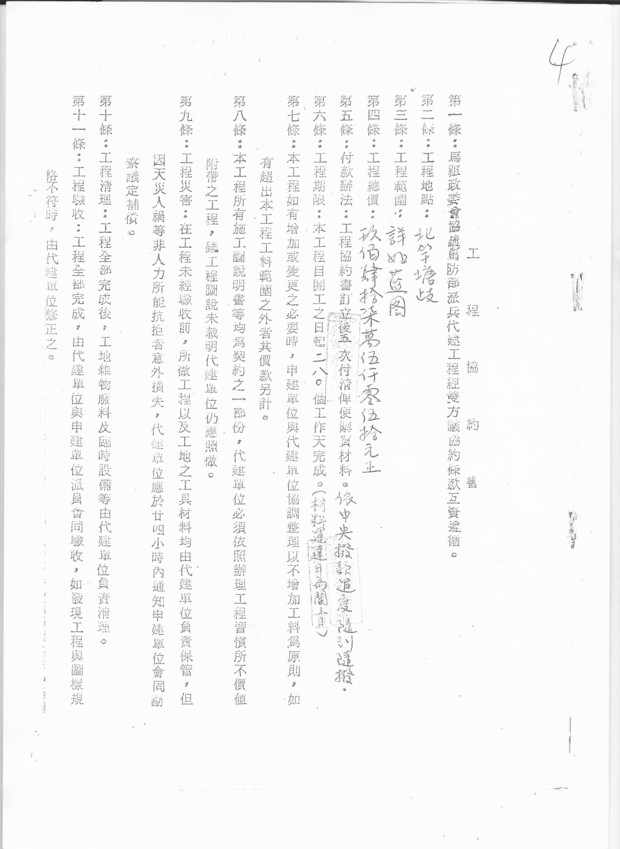 4
工程協約書
第一條：為祖政委會協請馬防部派兵代建工程經雙方議協約條款互資遵循。
第二條：工程地點：北竿塘岐
第三條：工程範圍：詳如藍图
第四條：工程總價：玖佰肆拾柒萬伍仟零伍拾元正
第五條：付款辦法：工程協約書訂立後五次付清俾便購買材料。依中央撥款進度隨到隨撥．
第六條：工程期限：本工程自開工之日起二八○個工作天完成。（材料運達日為開工）
第七條：本工程如有增加或變更之必要時，申建單位與代建單位協調整理以不增加工料為原則，如
有超出本工程工料範圍之外者其價款另計。
第八條：本工程所有施工圖說明書等均為契約之一部份，代建單位必須依照辦理工程習慣所不價值
附帶之工程，雖工程圖說未載明代建單位仍應照做。
第九條：工程災害：在工程未經驗收前，所做工程以及工地之工具材料均由代建單位負責保管，但
因天災人禍等非人力所能抗拒者意外損失，代建單位應於廿四小時內通知申建單位會同勘
察議定補償。
第十條：工程清理：工程全部完成後，工地雜物廢料及臨時設備等由代建單位負責清理。
第十一條：工程驗收：工程全部完成，由代建單位與申建單位派員會同驗收，如發現工程與圖樣規
格不符時，由代建單位整正之。